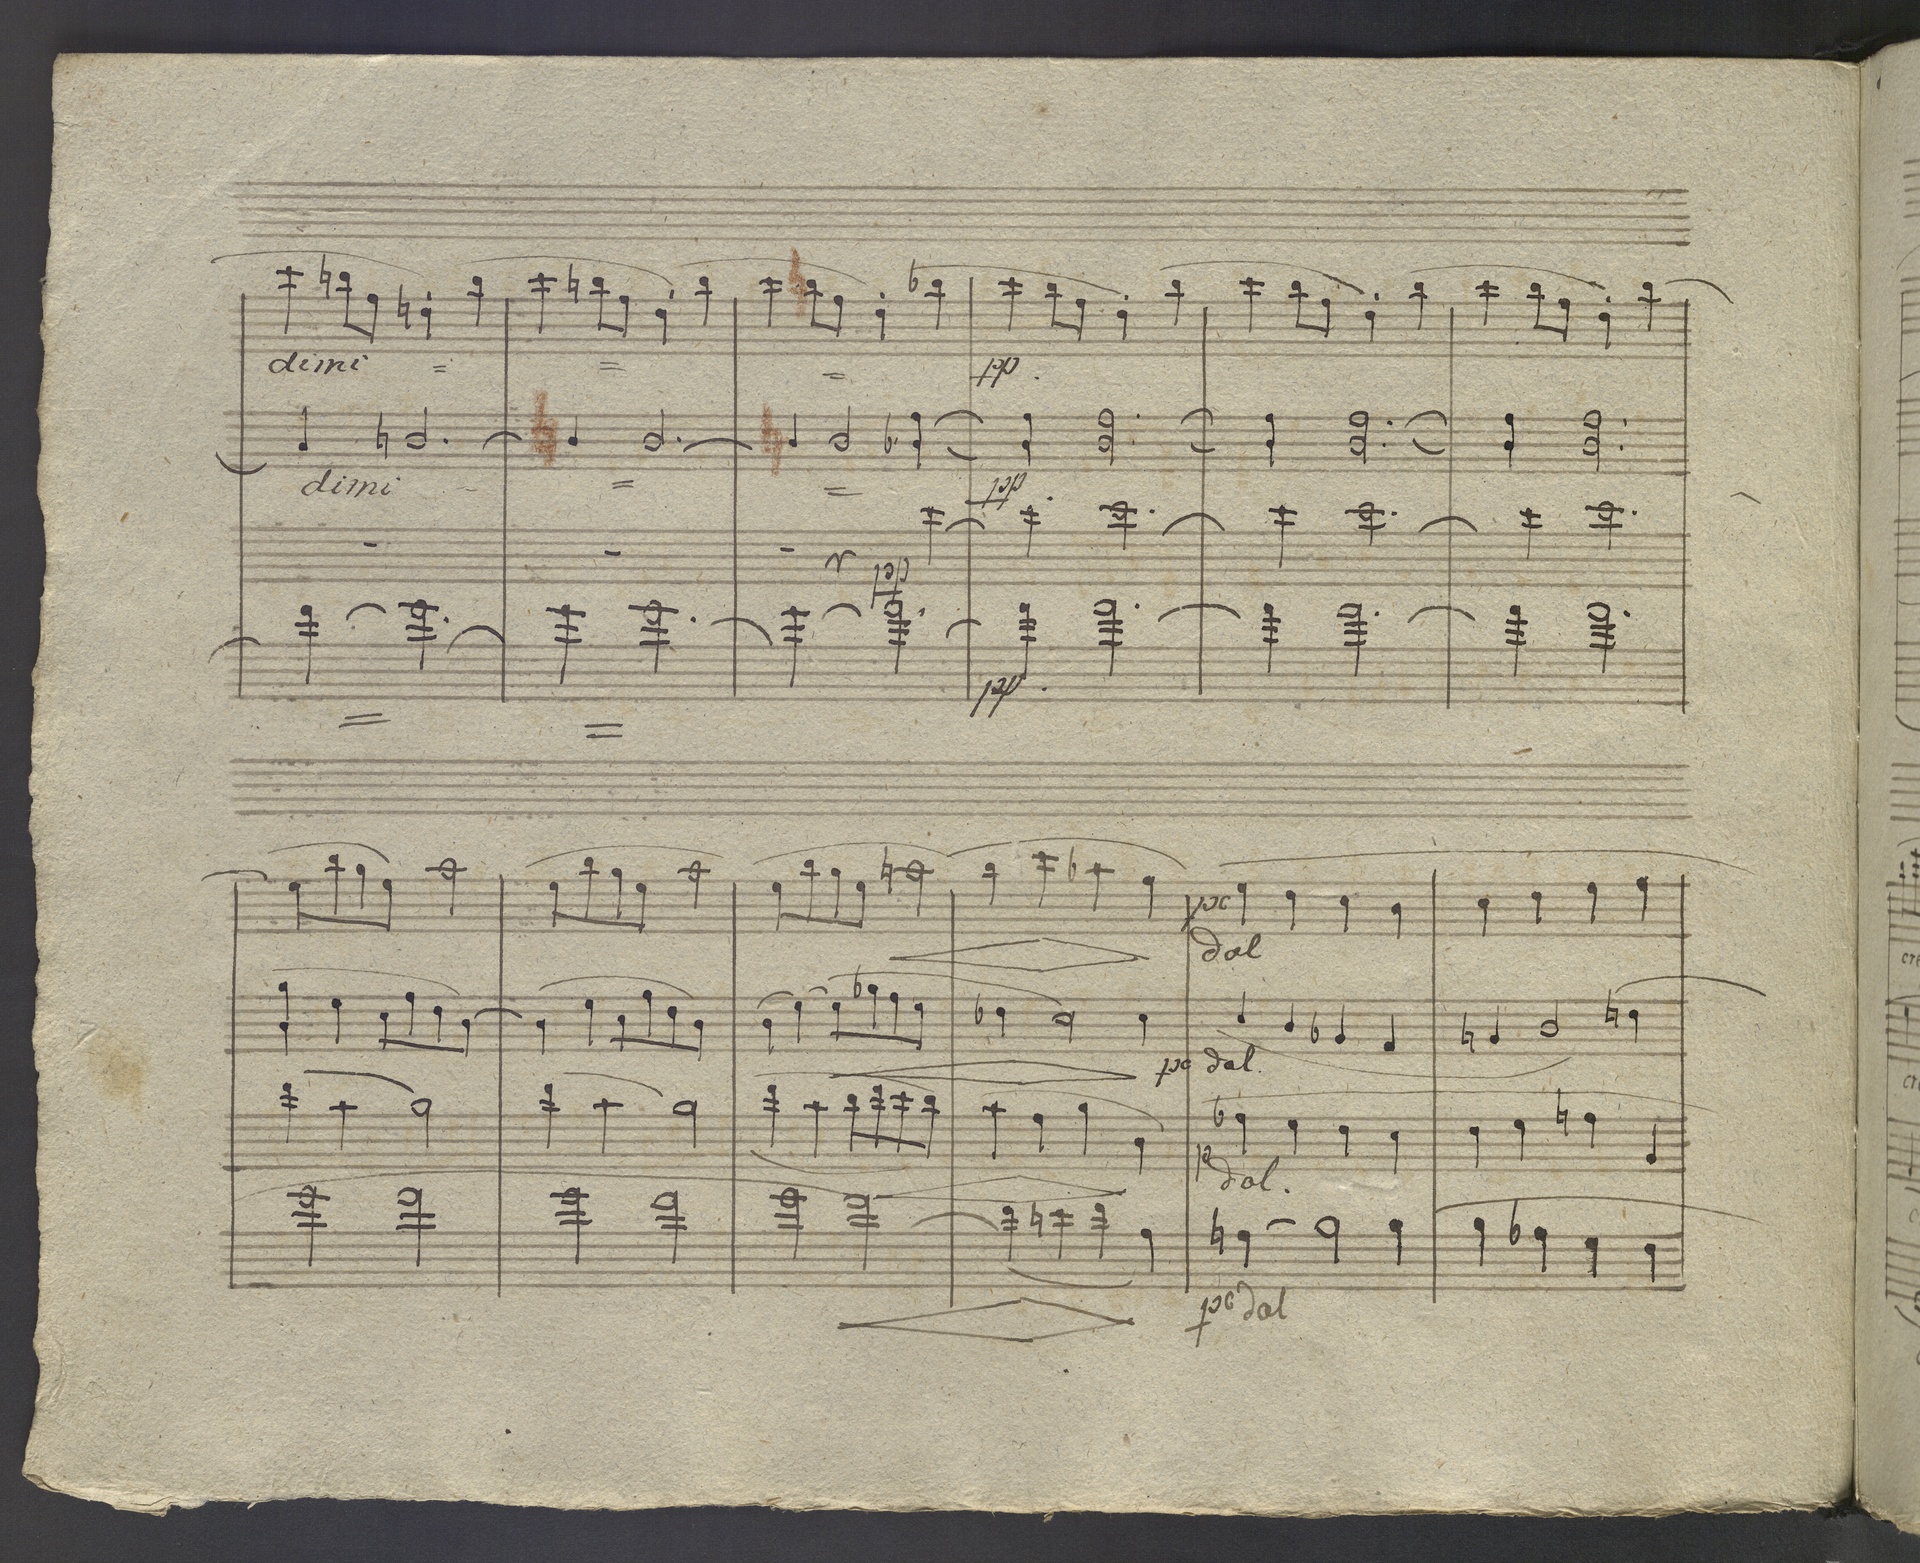 dimi = = = pp.
dimi - = = pp.
pp
= = pp.
pp
dol
pp dol.
p
dol.
pp dol
cre
cre